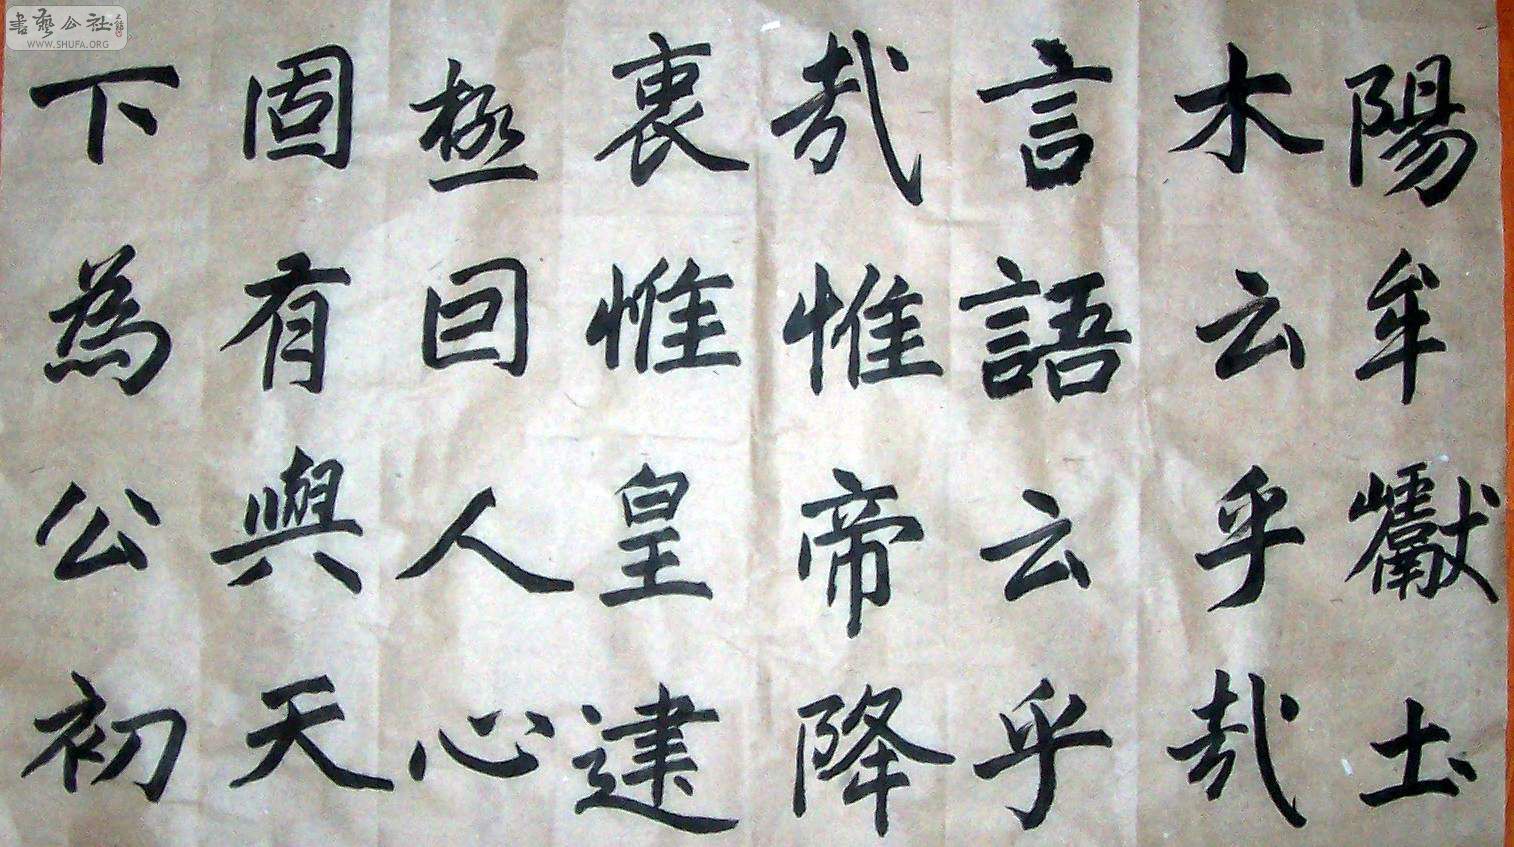 陽牟巘土
木云乎哉
言語云乎
哉惟帝降
衷惟皇建
極囙人心
固有與天
下為公初
書藝公社
WWW.SHUFA.ORG